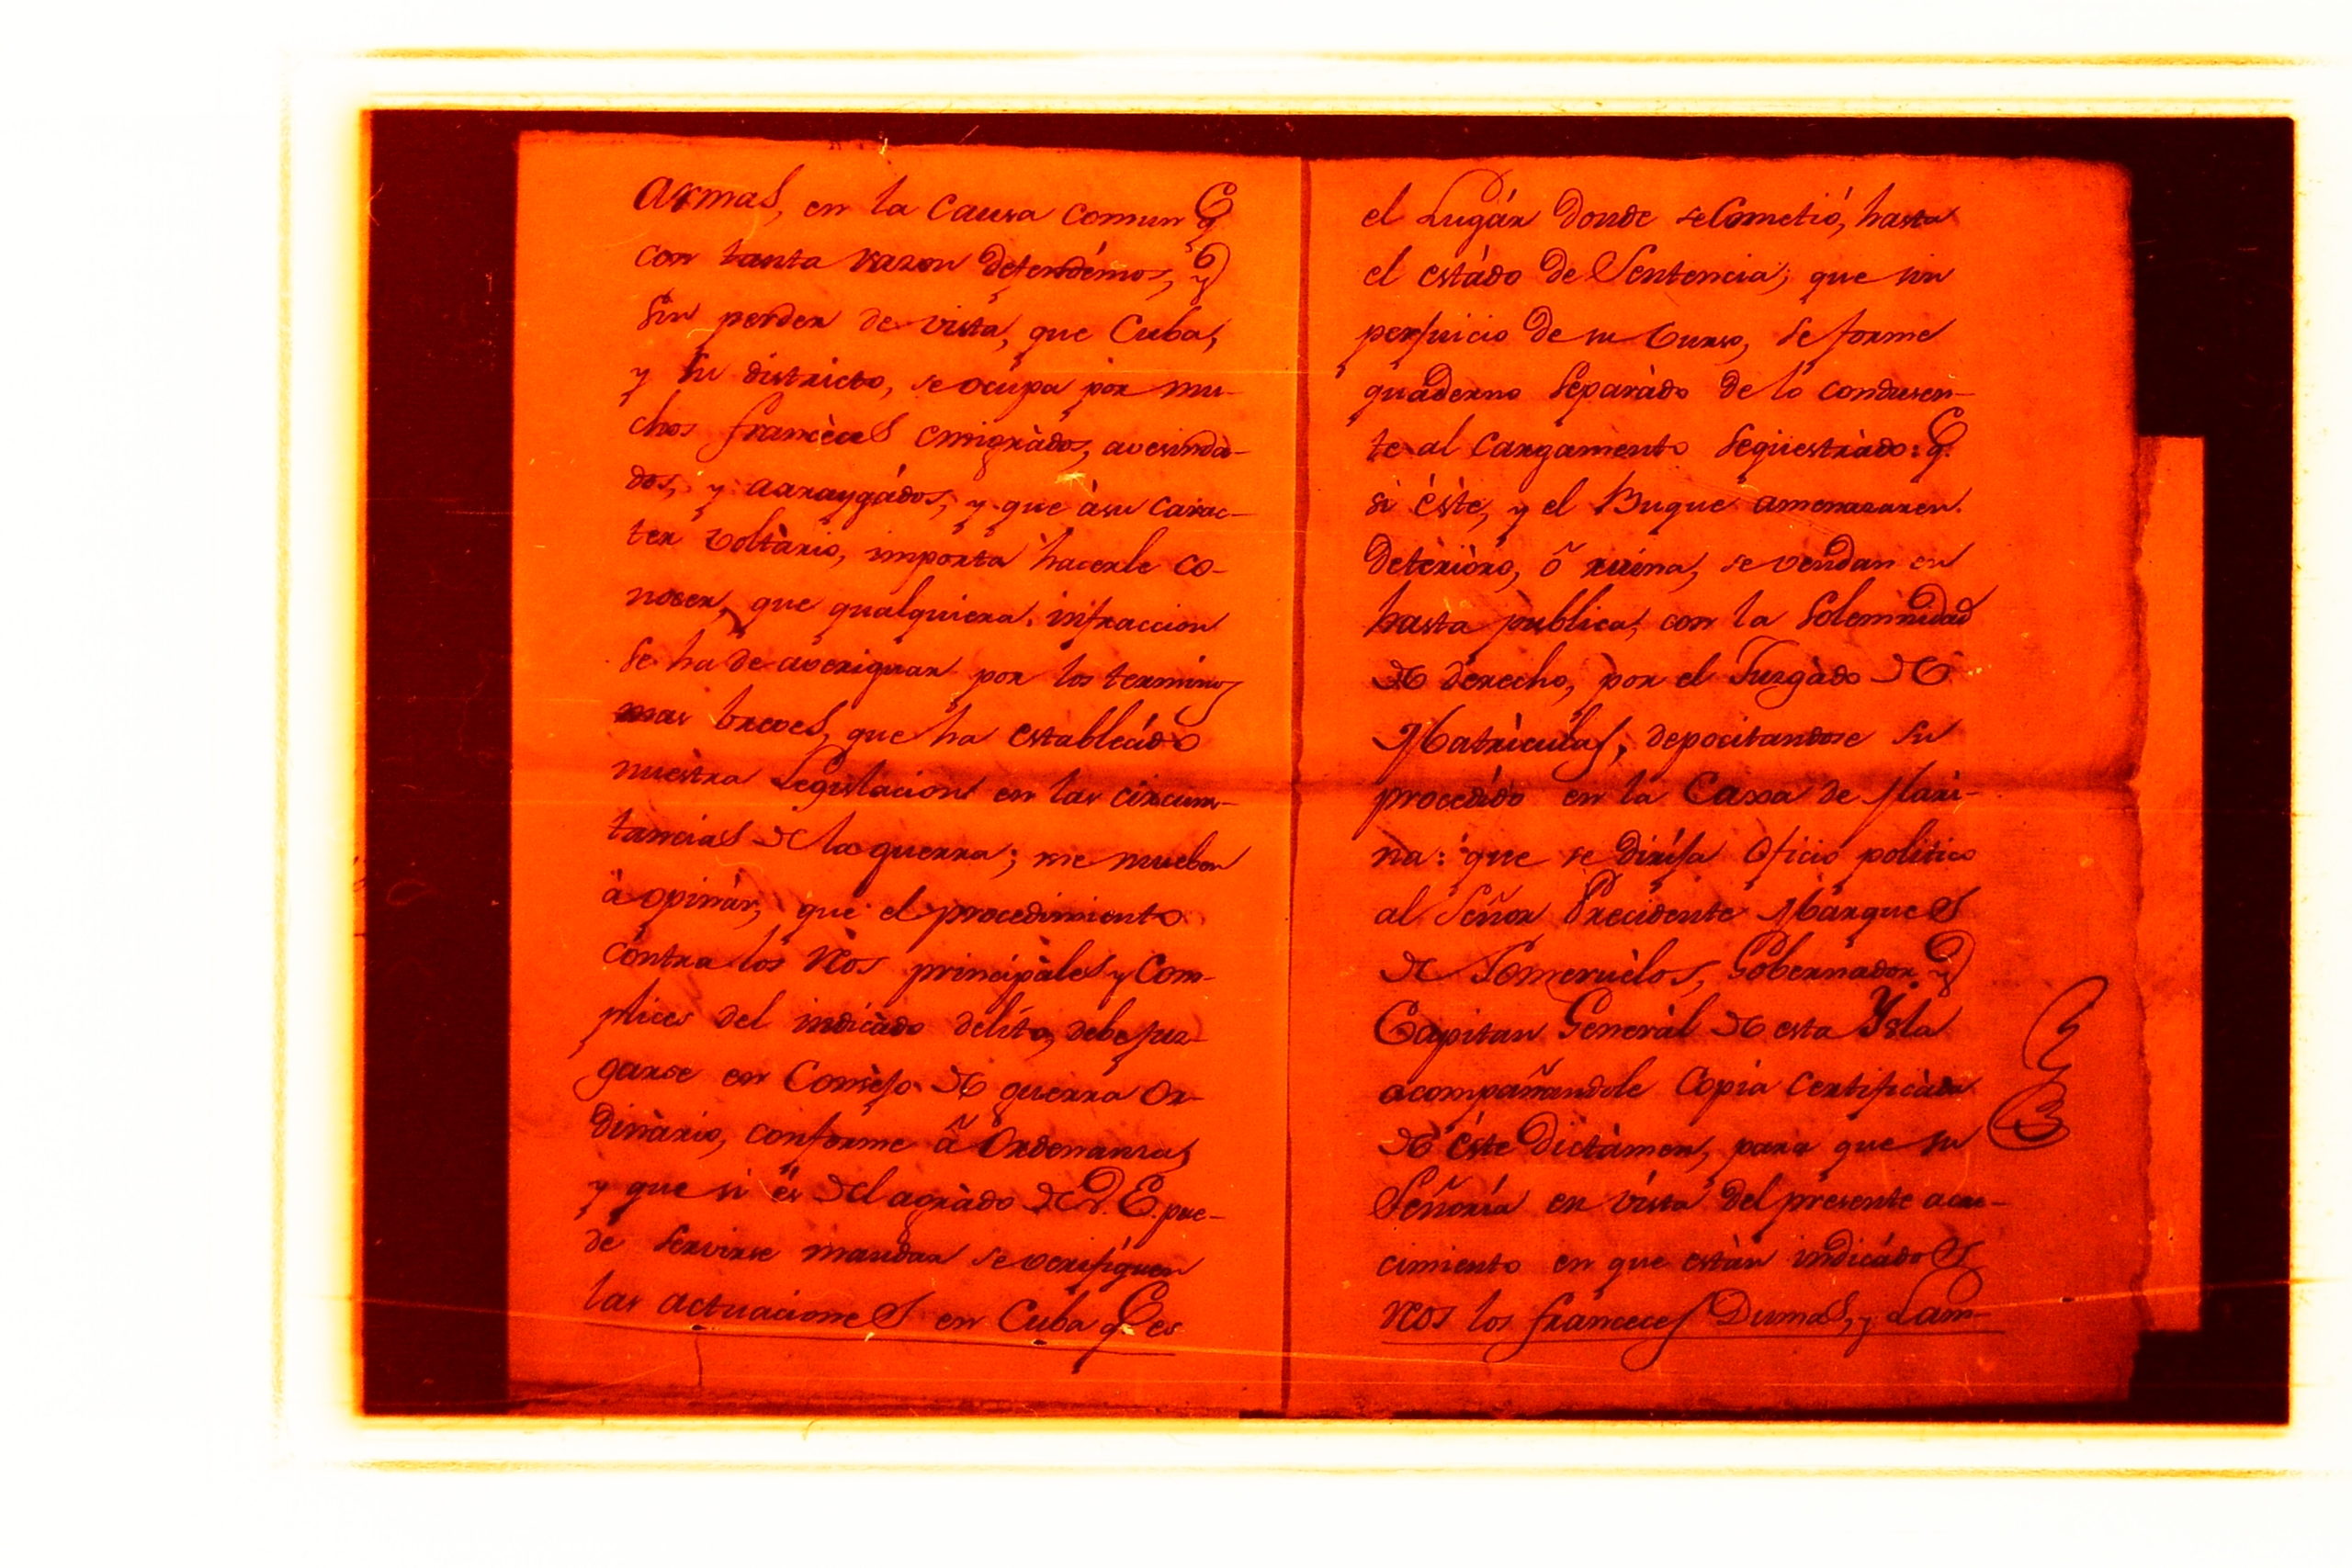 Armas, en la causa comun q.e
con tanta razon defendémos, y
sin perder de vista, que Cuba,
y su districto, se ocupa por mu-
chos francèces emigràdos, avesinda-
dos, y aaraygádos, y que àsu carac-
ter voltàrio, importa hacerle co-
nocer, que qualquiera infraccion
se ha de averiguar por los terminos
mas breves, que ha establecido
nuestra Legislacion en las circuns-
tancias de la guerra; me mueben
à opinàr, que el procedimiento
contra los Rèos principàles y Com-
plices del indicàdo delíto, debe juz-
garse en Consèjo de guerra Or-
dinàrio, conforme â Ordenanzas
y que si és del agràdo de V.E. pue-
de servirse mandar se verifiquen
las actuaciones en Cuba q.e es
el Lugár donde se Cometió, hasta
el estádo de Sentencia; que sin
perjuicio de su Curso, se forme
quaderno Separàdo de lo condusen-
te al Cargamento Seqüestràdo: q.e
si éste, y el Buque amenazaren
deterióro, ô ruina, se vendan en
hasta publica, con la Solemnidad
de derecho, por el Juzgàdo de
Matrìculas; depocitandose su
procedìdo en la Caxa de Mari-
na: que se dirija Oficio politico
al Señor Precidente Marques
de Someruèlos, Gobernador y
Capitan Generàl de esta Ysla
acompañandole Copia Certificàda
de éste Dictàmen, para que su
Señoría en vista del presente acae-
cimiento en que estàn indicádos
reos los franceces Dumas, y Lam-